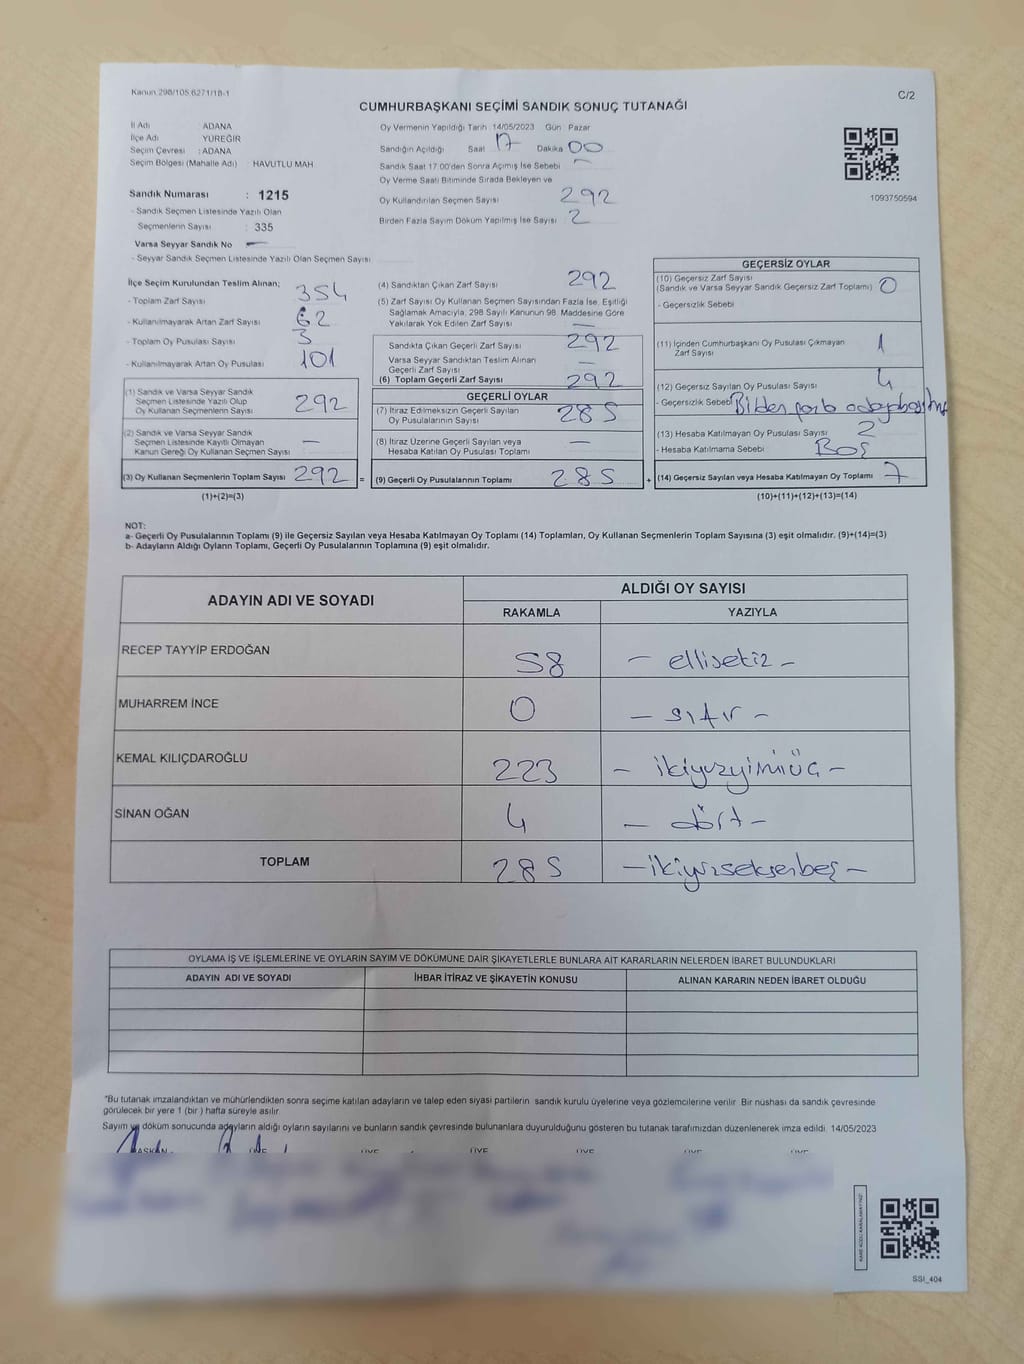 Kanun 298/105.6271/18-1
C/2
CUMHURBAŞKANI SEÇİMİ SANDIK SONUÇ TUTANAĞI
İl Adı ADANA
İlçe Adı YÜREĞİR
Seçim Çevresi : ADANA
Seçim Bölgesi (Mahalle Adı) : HAVUTLU MAH
Sandık Numarası : 1215
- Sandık Seçmen Listesinde Yazılı Olan
Seçmenlerin Sayısı : 335
Varsa Seyyar Sandık No —
- Seyyar Sandık Seçmen Listesinde Yazılı Olan Seçmen Sayısı
Oy Vermenin Yapıldığı Tarih 14/05/2023 Gün Pazar
Sandığın Açıldığı Saat 17 Dakika 00
Sandık Saat 17:00'den Sonra Açılmış İse Sebebi —
Oy Verme Saati Bitiminde Sırada Bekleyen ve
Oy Kullandırılan Seçmen Sayısı 292
Birden Fazla Sayım Döküm Yapılmış İse Sayısı 2
1093750594
İlçe Seçim Kurulundan Teslim Alınan;
- Toplam Zarf Sayısı 354
- Kullanılmayarak Artan Zarf Sayısı 62
- Toplam Oy Pusulası Sayısı 3
- Kullanılmayarak Artan Oy Pusulası 101
(1) Sandık ve Varsa Seyyar Sandık
Seçmen Listesinde Yazılı Olup
Oy Kullanan Seçmenlerin Sayısı 292
(2) Sandık ve Varsa Seyyar Sandık
Seçmen Listesinde Kayıtlı Olmayan
Kanun Gereği Oy Kullanan Seçmen Sayısı —
(3) Oy Kullanan Seçmenlerin Toplam Sayısı 292 =
(1)+(2)=(3)
(4) Sandıktan Çıkan Zarf Sayısı 292
(5) Zarf Sayısı Oy Kullanan Seçmen Sayısından Fazla İse, Eşitliği
Sağlamak Amacıyla, 298 Sayılı Kanunun 98. Maddesine Göre
Yakılarak Yok Edilen Zarf Sayısı —
Sandıkta Çıkan Geçerli Zarf Sayısı 292
Varsa Seyyar Sandıktan Teslim Alınan
Geçerli Zarf Sayısı —
(6) Toplam Geçerli Zarf Sayısı 292
GEÇERLİ OYLAR
(7) İtiraz Edilmeksizin Geçerli Sayılan
Oy Pusulalarının Sayısı 285
(8) İtiraz Üzerine Geçerli Sayılan veya
Hesaba Katılan Oy Pusulası Toplamı —
(9) Geçerli Oy Pusulalarının Toplamı 285 +
GEÇERSİZ OYLAR
(10) Geçersiz Zarf Sayısı
(Sandık ve Varsa Seyyar Sandık Geçersiz Zarf Toplamı) 0
- Geçersizlik Sebebi
(11) İçinden Cumhurbaşkanı Oy Pusulası Çıkmayan
Zarf Sayısı 1
(12) Geçersiz Sayılan Oy Pusulası Sayısı 4
- Geçersizlik Sebebi
(13) Hesaba Katılmayan Oy Pusulası Sayısı 2
- Hesaba Katılmama Sebebi Boş
(14) Geçersiz Sayılan veya Hesaba Katılmayan Oy Toplamı 7
(10)+(11)+(12)+(13)=(14)
NOT:
a- Geçerli Oy Pusulalarının Toplamı (9) ile Geçersiz Sayılan veya Hesaba Katılmayan Oy Toplamı (14) Toplamları, Oy Kullanan Seçmenlerin Toplam Sayısına (3) eşit olmalıdır. (9)+(14)=(3)
b- Adayların Aldığı Oyların Toplamı, Geçerli Oy Pusulalarının Toplamına (9) eşit olmalıdır.
ADAYIN ADI VE SOYADI ALDIĞI OY SAYISI
RAKAMLA YAZIYLA
RECEP TAYYİP ERDOĞAN 58 — ellisekiz —
MUHARREM İNCE 0 — sıfır —
KEMAL KILIÇDAROĞLU 223 — ikiyüzyirmiüç —
SİNAN OĞAN 4 — dört —
TOPLAM 285 — ikiyüzseksenbeş —
OYLAMA İŞ VE İŞLEMLERİNE VE OYLARIN SAYIM VE DÖKÜMÜNE DAİR ŞİKAYETLERLE BUNLARA AİT KARARLARIN NELERDEN İBARET BULUNDUKLARI
ADAYIN ADI VE SOYADI İHBAR İTİRAZ VE ŞİKAYETİN KONUSU ALINAN KARARIN NEDEN İBARET OLDUĞU
"Bu tutanak imzalandıktan ve mühürlendikten sonra seçime katılan adayların ve talep eden siyasi partilerin sandık kurulu üyelerine veya gözlemcilerine verilir. Bir nüshası da sandık çevresinde
görülecek bir yere 1 (bir) hafta süreyle asılır.
Sayım ve döküm sonucunda adayların aldığı oyların sayılarını ve bunların sandık çevresinde bulunanlara duyurulduğunu gösteren bu tutanak tarafımızdan düzenlenerek imza edildi. 14/05/2023
BAŞKAN ÜYE ÜYE ÜYE ÜYE ÜYE
SSI_404